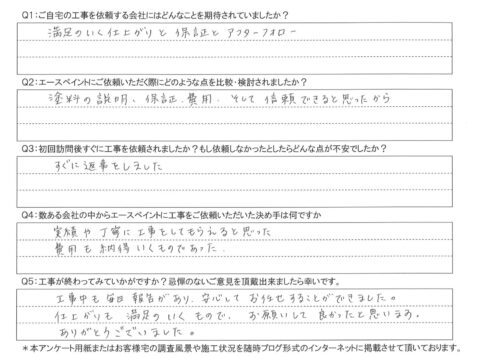 Q1：ご自宅の工事を依頼する会社にはどんなことを期待されていましたか？
満足のいく仕上がりと保証とアフターフォロー
Q2：エースペイントにご依頼いただく際にどのような点を比較・検討されましたか？
塗料の説明、保証、費用、そして信頼できると思ったから
Q3：初回訪問後すぐに工事を依頼されましたか？もし依頼しなかったとしたらどんな点が不安でしたか？
すぐに返事をしました
Q4：数ある会社の中からエースペイントに工事をご依頼いただいた決め手は何ですか
実績や丁寧に工事をしてもらえると思った
費用も納得いくものであった.
Q5：工事が終わってみていかがですか？忌憚のないご意見を頂戴出来ましたら幸いです。
工事中も毎日報告があり、安心してお任せすることができました。
仕上がりも満足のいくもので、お願いして良かったと思います。
ありがとうございました。
＊本アンケート用紙またはお客様宅の調査風景や施工状況を随時ブログ形式のインターネットに掲載させて頂いております。